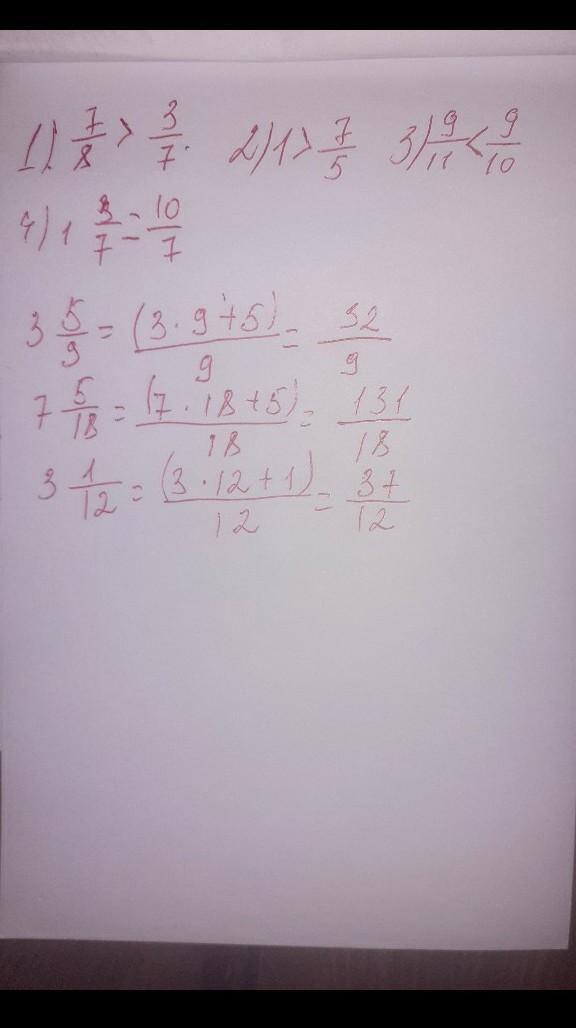 1) 7/8 > 3/7. 2) 1 > 7/5 3) 9/11 < 9/10
4) 1 3/7 = 10/7
3 5/9 = (3·9+5)/9 = 32/9
7 5/18 = (7·18+5)/18 = 131/18
3 1/12 = (3·12+1)/12 = 37/12